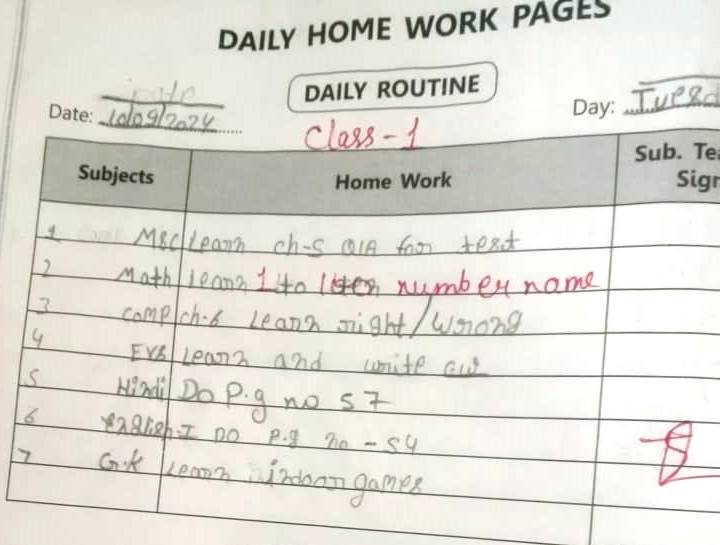 DAILY HOME WORK PAGES
DAILY ROUTINE
Date: 10/09/2024 Day: Tuesd
Class-1
Subjects Home Work Sub. Tea
Sign
1 MSC Learn ch-5 Q/A for test
2 Math Learn 1 to number name
3 comp ch-6 Learn right/Wrong
4 EVS Learn and write cw
5 Hindi Do P.g no 57
6 English-I DO P.g no - 54
7 G.K Learn indoor games